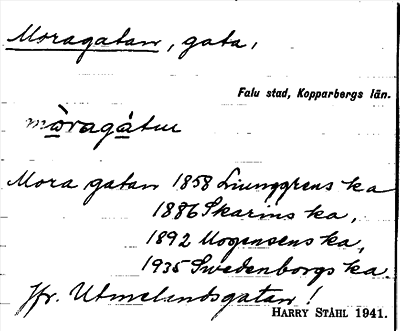 Moragatan, gata,
Falu stad, Kopparbergs län.
mòragátuu
Mora gatan 1858 Ljunggrens ka
1886 Skarins ka,
1892 Mogensens ka,
1935 Swedenborgs ka.
Jfr. Utmelandsgatan!
HARRY STÅHL 1941.